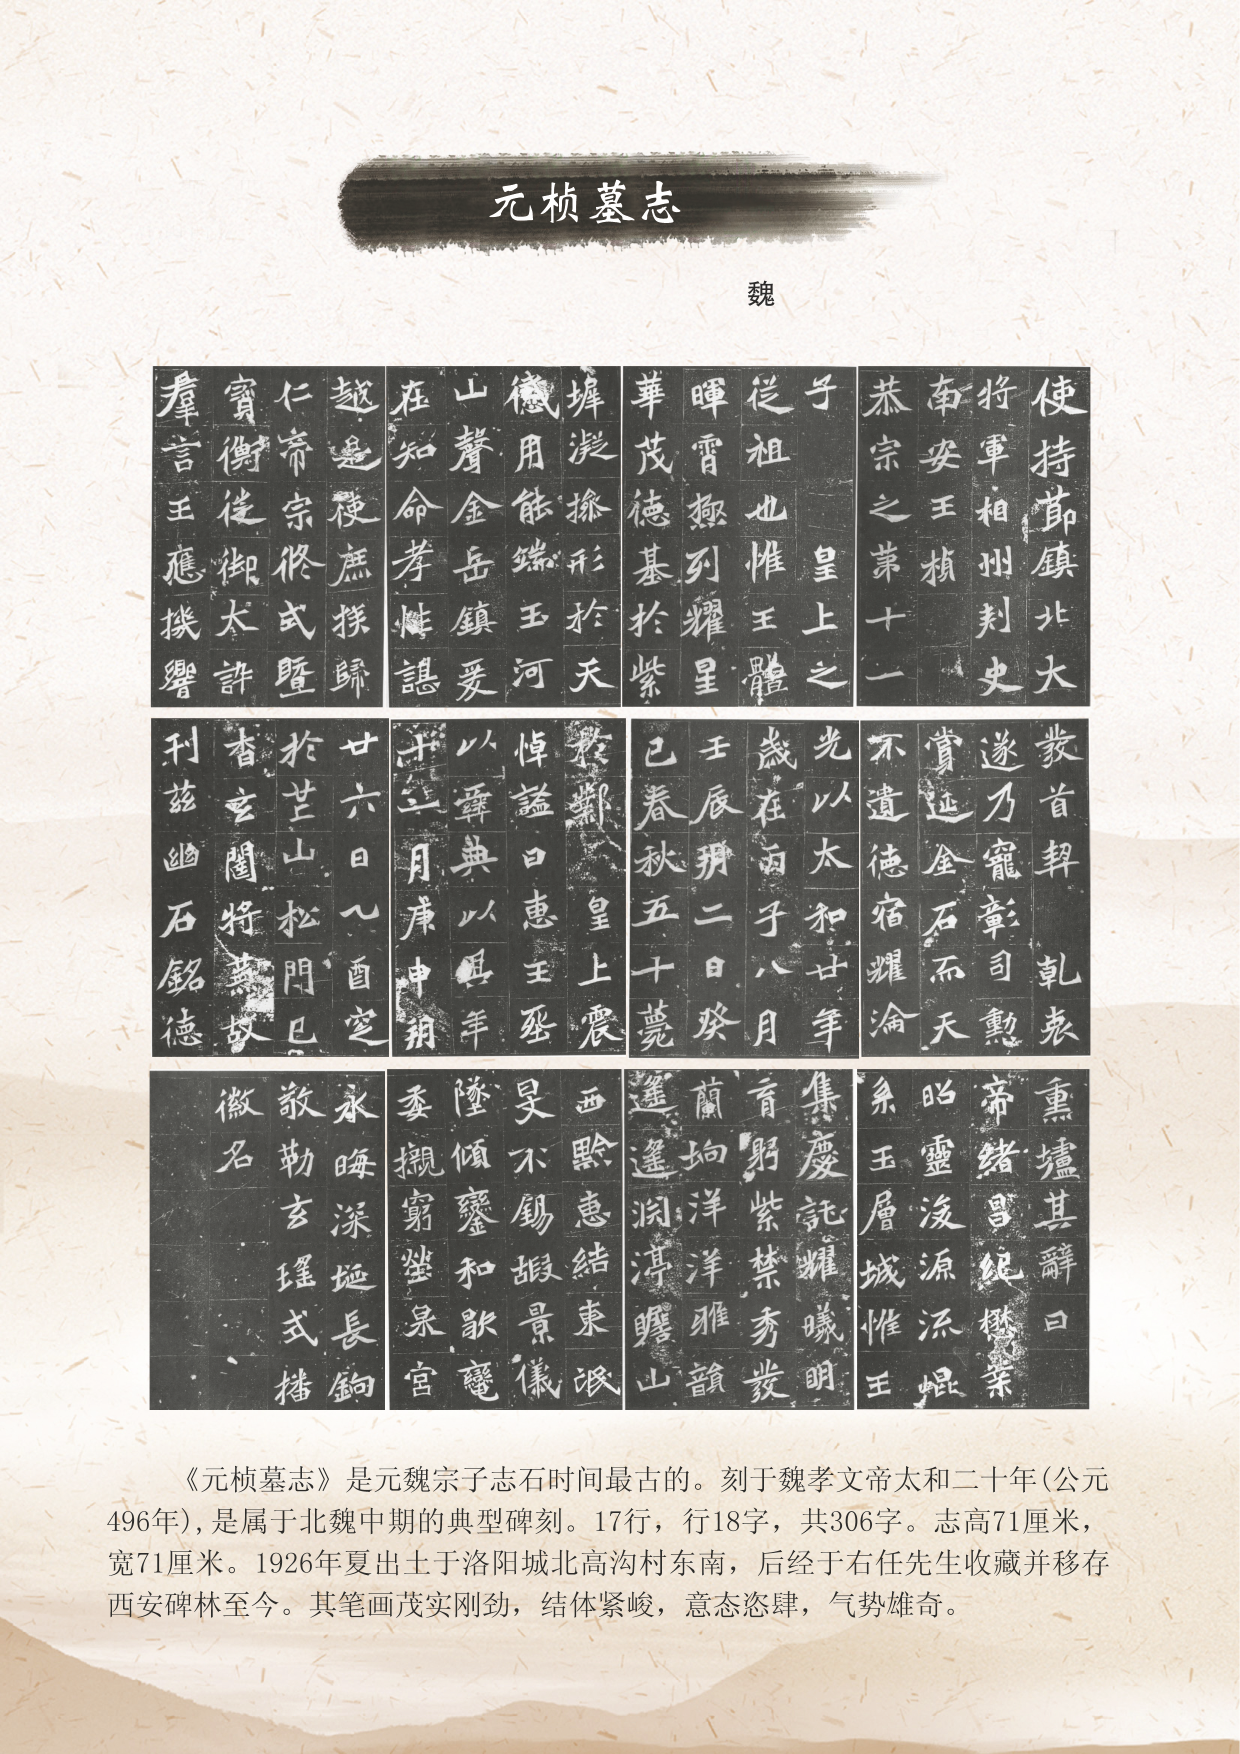 元桢墓志
魏
使持節鎮北大
將軍相州刺史
南安王楨
恭宗之第十一
子 皇上之
從祖也惟王體
暉霄極列耀星
華茂德基於紫
墀凝操形於天
感用能端玉河
山聲金岳鎮爰
在知命孝性諶
越是使庶族歸
仁帝宗攸式暨
寶衡從御大訝
羣言王應機響
發首契 乾衷
遂乃寵彰司勳
賞延金石而天
不遺德宿耀淪
光以太和廿年
歲在丙子八月
壬辰朔二日癸
巳春秋五十薨
於鄴 皇上震
悼諡曰惠王葬
以彝典以其年
十一月庚申朔
廿六日乙酉窆
於芒山松門已
杳玄闥將蕪故
刊茲幽石銘德
熏壚其辭曰
帝緒昌紀懋業
昭靈浚源流崐
系玉層城惟王
集慶託耀曦明
育躬紫禁秀發
蘭坰洋洋雅韻
遙遙淵渟瞻山
西黔惠結東氓
旻不錫嘏景儀
墜傾鑾和歇鑾
委櫬窮塋泉宮
永晦深埏長鐍
敬勒玄瑤式播
徽名
《元桢墓志》是元魏宗子志石时间最古的。刻于魏孝文帝太和二十年(公元
496年),是属于北魏中期的典型碑刻。17行，行18字，共306字。志高71厘米，
宽71厘米。1926年夏出土于洛阳城北高沟村东南，后经于右任先生收藏并移存
西安碑林至今。其笔画茂实刚劲，结体紧峻，意态恣肆，气势雄奇。